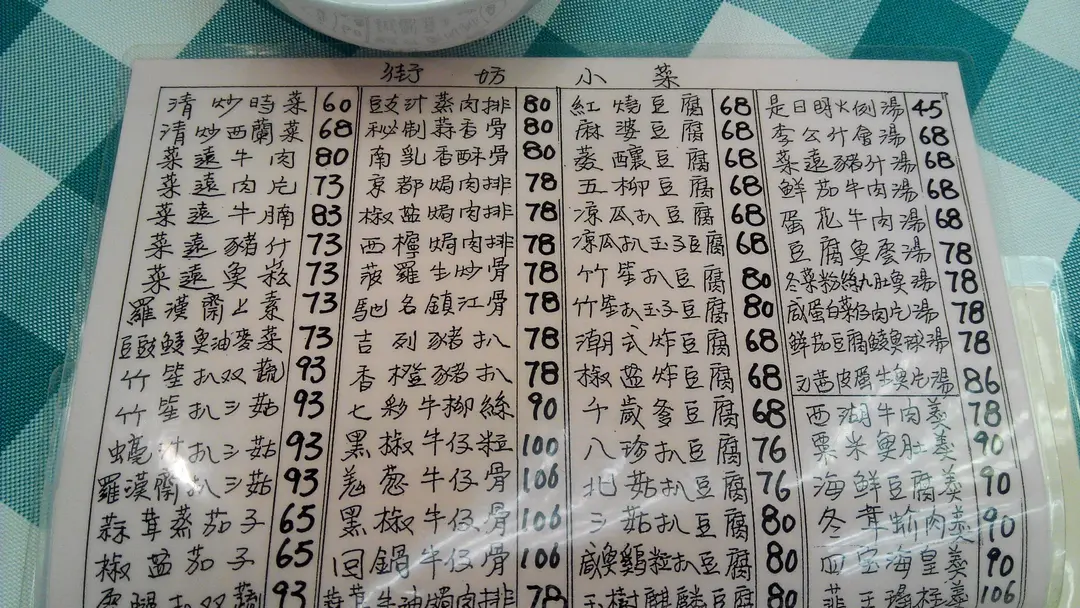 街坊小菜
清炒時菜 60
清炒西蘭菜 68
菜遠牛肉 80
菜遠肉片 73
菜遠牛腩 83
菜遠豬什 73
菜遠奐菘 73
羅漢齋上素 73
豆豉鯪奐油麥菜 73
竹笙扒双蔬 93
竹笙扒三菇 93
蚝汁扒三菇 93
羅漢齋扒三菇 93
蒜茸蒸茄子 65
椒盐茄子 65
扒双蔬 93
豉汁蒸肉排 80
秘制蒜香骨 80
南乳香酥骨 80
京都焗肉排 78
椒盐焗肉排 78
西檸焗肉排 78
菠羅生炒骨 78
馳名鎮江骨 78
吉列豬扒 78
香橙豬扒 78
七彩牛柳絲 90
黑椒牛仔粒 100
羗葱牛仔骨 106
黑椒牛仔骨 106
回鍋牛仔骨 106
牛油焗肉排 78
紅燒豆腐 68
麻婆豆腐 68
菱釀豆腐 68
五柳豆腐 68
凉瓜扒豆腐 68
凉瓜扒玉子豆腐 68
竹笙扒豆腐 80
竹笙扒玉子豆腐 80
潮式炸豆腐 68
椒盐炸豆腐 68
千歲爹豆腐 68
八珍扒豆腐 76
北菇扒豆腐 76
三菇扒豆腐 80
咸奐鷄粒扒豆腐 80
玉樹麒麟豆腐 80
是日明火例湯 45
李公什會湯 68
菜遠豬什湯 68
鮮茄牛肉湯 68
蛋花牛肉湯 68
豆腐奐蛋湯 78
冬菜粉絲九肚奐湯 78
咸蛋白菜仔肉片湯 78
鮮茄豆腐鯪奐球湯 78
芫茜皮蛋生奐片湯 86
西湖牛肉羹 78
粟米奐肚羹 90
海鮮豆腐羹 90
冬茸蚧肉羹 90
四宝海皇羹 90
韮王瑤柱羹 106